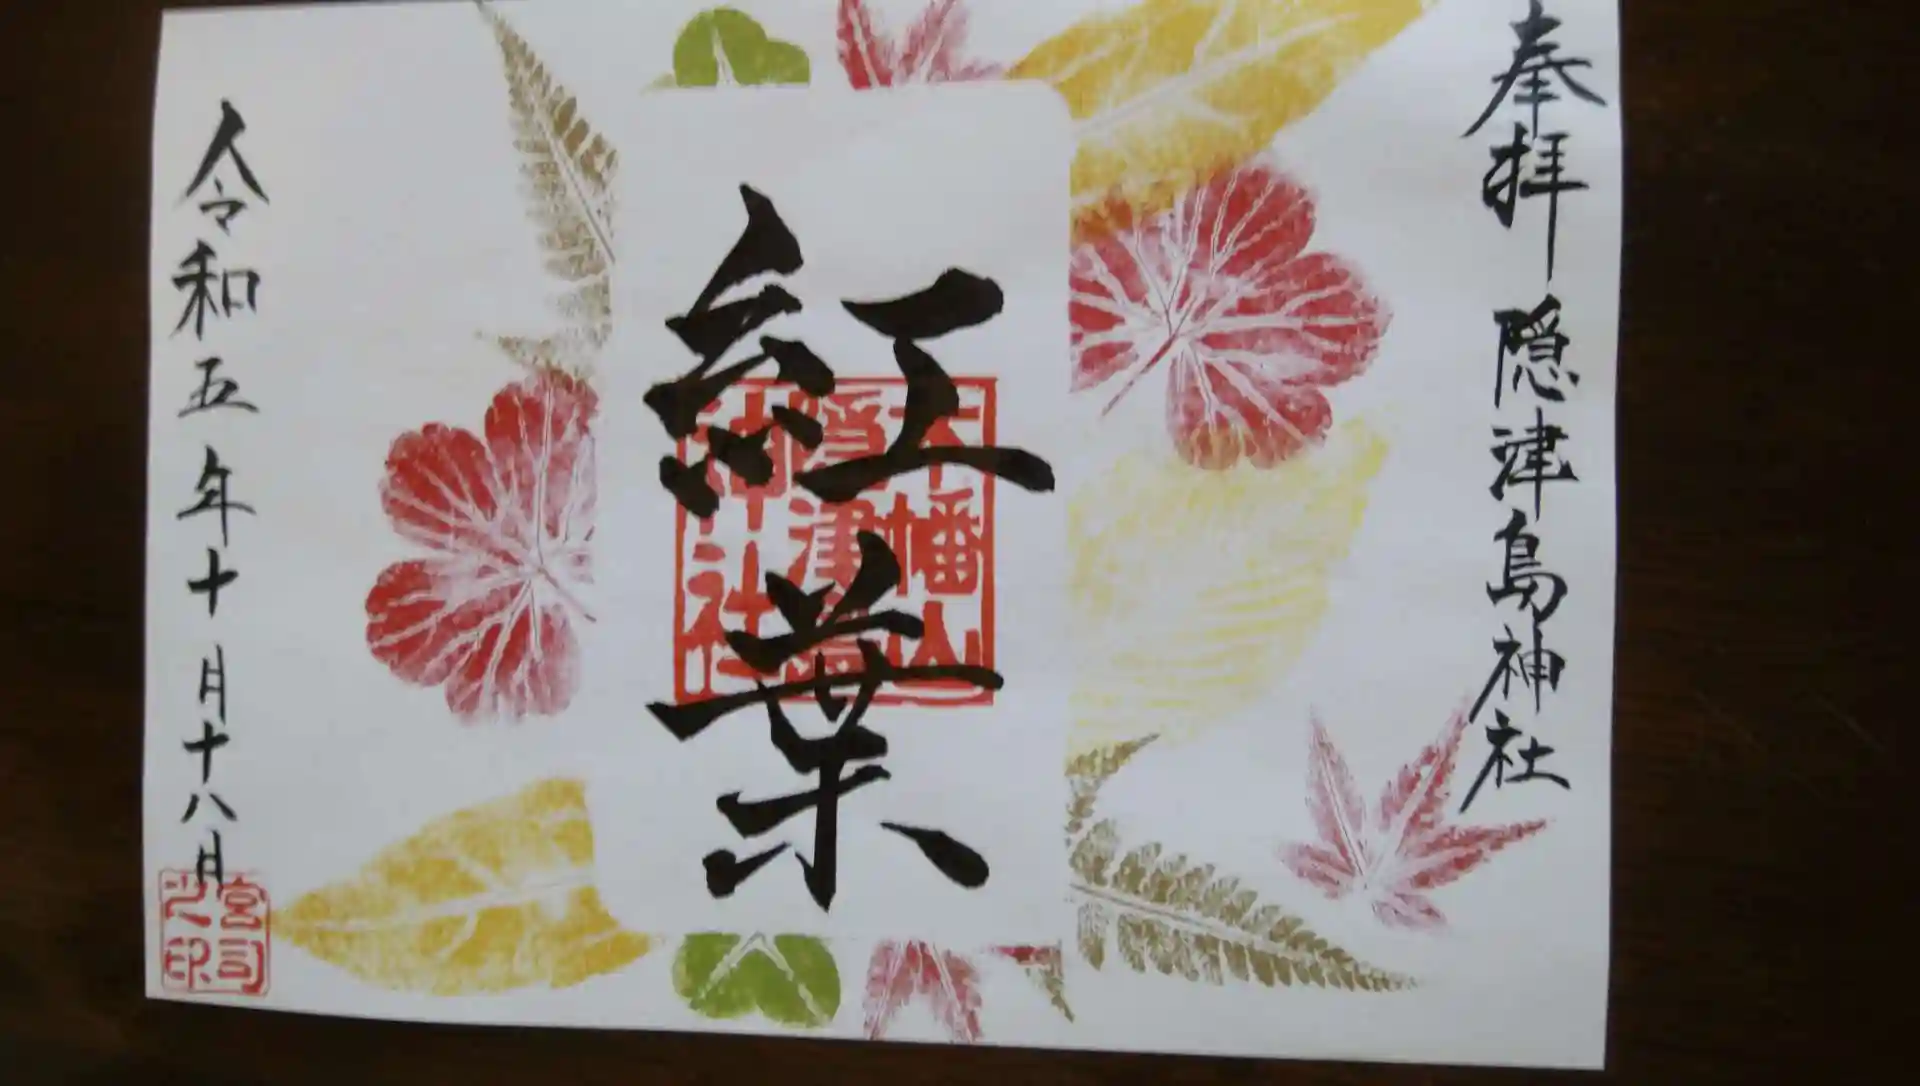 奉拝 隠津島神社
紅葉
木幡山
隠津島
神社
令和五年十月十八日
宮司
之印